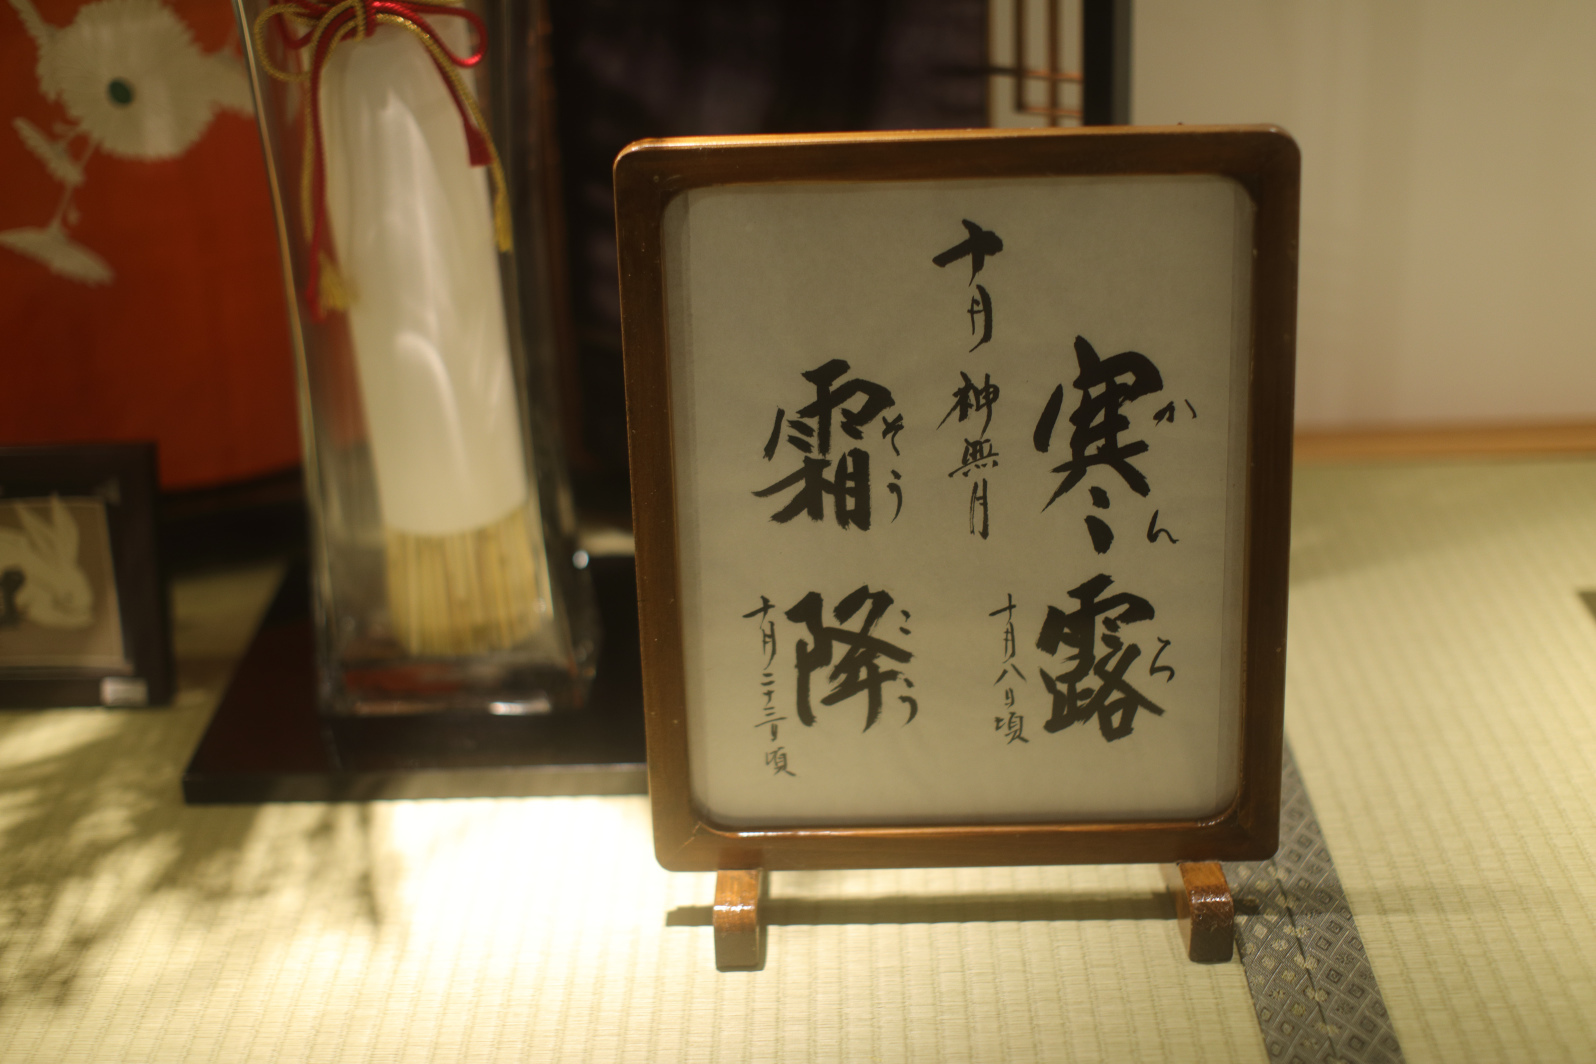 寒露
かんろ
十月八日頃
十月 神無月
霜降
そうこう
十月二十三日頃